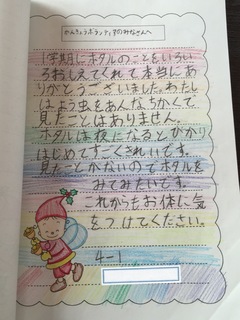 かんきょうボランティアのみなさんへ
1学期にホタルのことをいろい
ろおしえてくれて本当にあ
りがとうございました。わたし
はよう虫をあんなちかくで
見たことはありません。
ホタルは夜になるとひかり
はじめてすごくきれいです。
見たことがないのでホタルを
みてみたいです。
これからもお体に気
をつけてください。
4-1